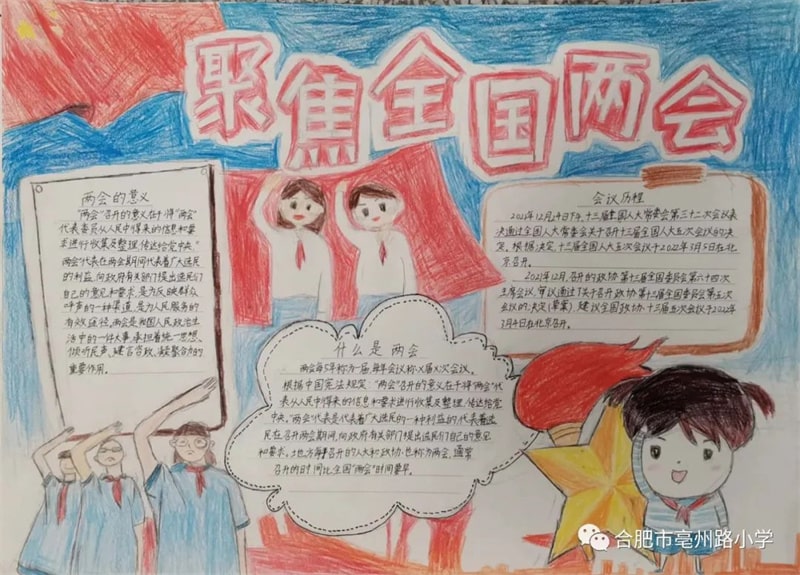 聚焦全国两会
两会的意义
"两会"召开的意义在于:将"两会"
代表委员从人民中得来的信息和要
求进行收集及整理,传达给党中央。
"两会"代表在两会期间代表着广大选民
的利益,向政府有关部门提出选民们
自己的意见和要求,是为反映群众
呼声的一种渠道,是为人民服务的
有效途径,两会是我国人民政治生
活中的一件大事,承担着统一思想、
倾听民声、建言咨政、凝聚合力的
重要作用。
会议历程
2021年12月24日下午,十三届全国人大常委会第三十二次会议表
决通过全国人大常委会关于召开十三届全国人大五次会议的决
定。根据决定,十三届全国人大五次会议于2022年3月5日在北
京召开。
2021年12月,召开的政协第十三届全国委员会第六十四次
主席会议,审议通过了关于召开政协第十三届全国委员会第五次
会议的决定(草案)建议全国政协十三届五次会议于2022年
3月4日在北京召开。
什么是两会
两会每5年称为一届,每年会议称X届X次会议。
根据中国宪法规定:"两会"召开的意义在于将"两会"代
表从人民中得来的信息和要求进行收集及整理,传达给党
中央。"两会"代表是代表着广大选民的一种利益的,代表着选
民在召开两会期间,向政府有关部门提出选民们自己的意见
和要求。地方每召开的人大和政协也称为两会,通常
召开的时间比全国"两会"时间要早。
合肥市亳州路小学